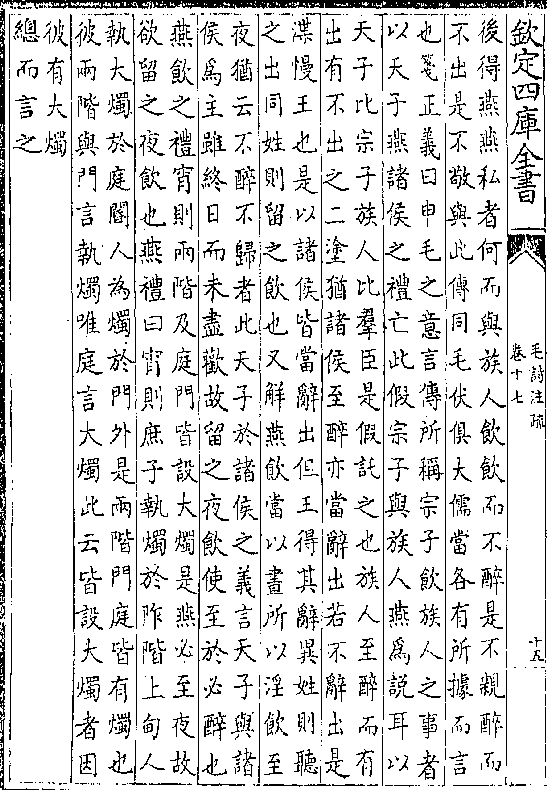 欽定四庫全書
毛詩注疏
卷十七
十五
後得燕燕私者何而與族人飲飲而不醉是不親醉而
不出是不敬與此傳同毛伏俱大儒當各有所據而言
也箋正義曰申毛之意言傳所稱宗子飲族人之事者
以天子燕諸侯之禮亡此假宗子與族人燕為說耳以
天子比宗子族人比羣臣是假託之也族人至醉而有
出有不出之二塗猶諸侯至醉亦當辭出若不辭出是
渫慢王也是以諸侯皆當辭出但王得其辭異姓則聽
之出同姓則留之飲也又解燕飲當以晝所以淫飲至
夜猶云不醉不歸者此天子於諸侯之義言天子與諸
侯為主雖終日而未盡歡故留之夜飲使至於必醉也
燕飲之禮宵則兩階及庭門皆設大燭是燕必至夜故
欲留之夜飲也燕禮曰宵則庶子執燭於阼階上甸人
執大燭於庭閽人為燭於門外是兩階門庭皆有燭也
彼兩階與門言執燭唯庭言大燭此云皆設大燭者因
彼有大燭
總而言之